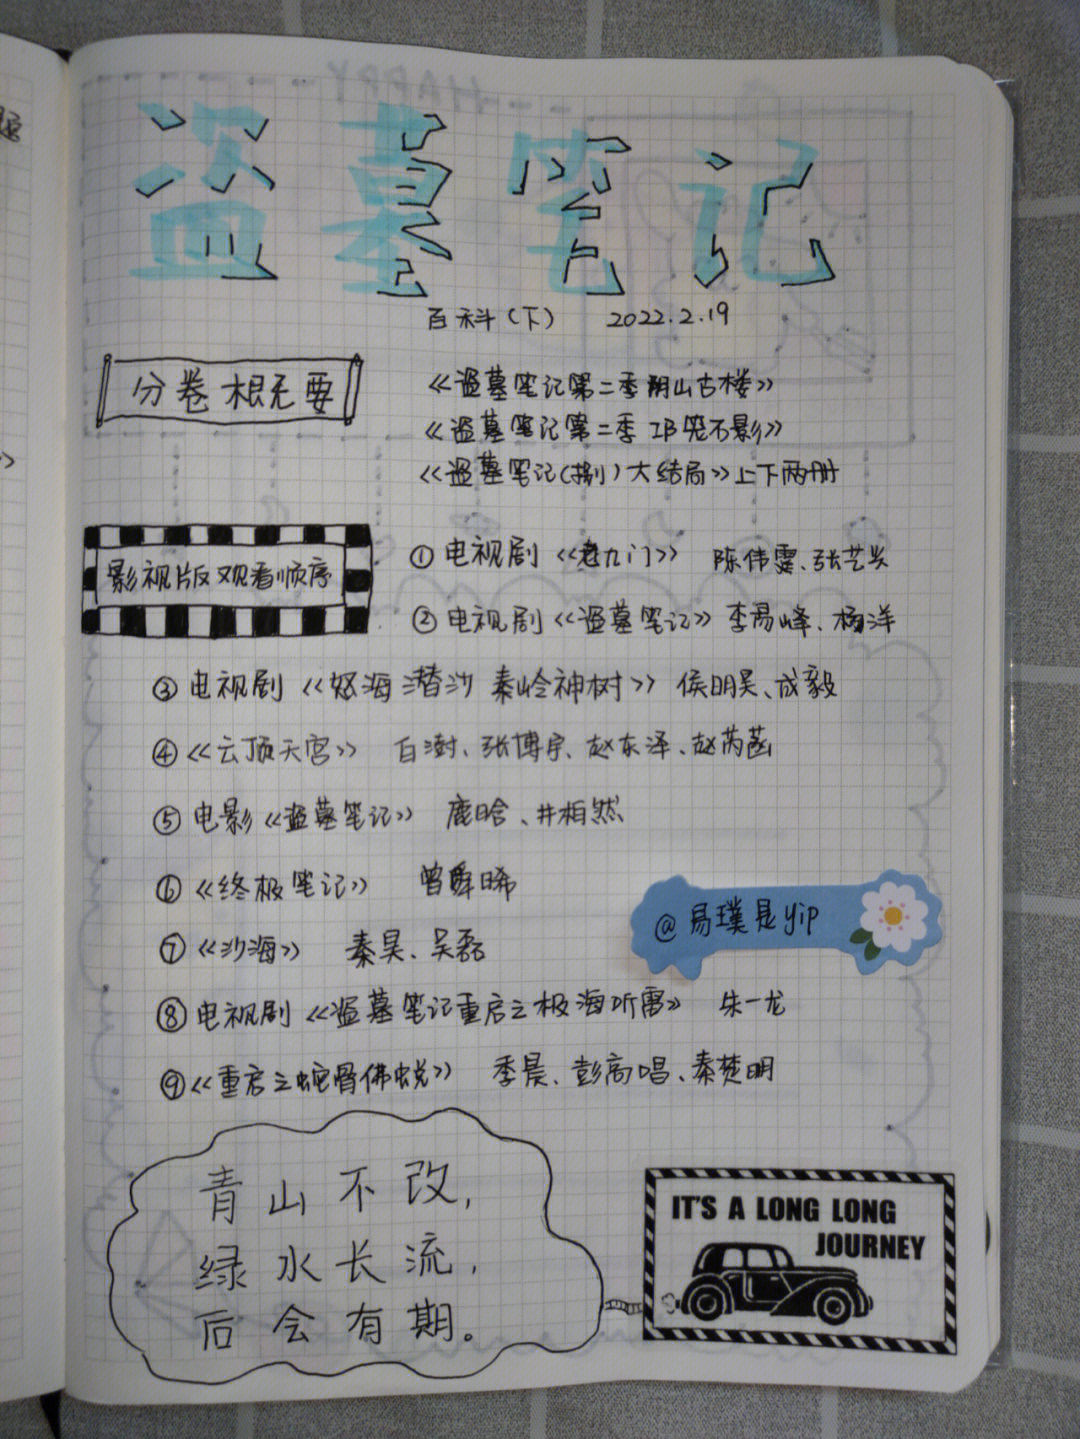 盗墓笔记
百科(下) 2022.2.19
分卷概要
《盗墓笔记第二季阴山古楼》
《盗墓笔记第二季 邛笼石影》
《盗墓笔记(捌)大结局》上下两册
影视版观看顺序
① 电视剧《老九门》 陈伟霆、张艺兴
② 电视剧《盗墓笔记》 李易峰、杨洋
③ 电视剧《怒海潜沙 秦岭神树》 侯明昊、成毅
④《云顶天宫》 白澍、张博宇、赵东泽、赵芮菡
⑤ 电影《盗墓笔记》 鹿晗、井柏然
⑥《终极笔记》 曾舜晞
@易璞是yip
⑦《沙海》 秦昊、吴磊
⑧ 电视剧《盗墓笔记重启之极海听雷》 朱一龙
⑨《重启之蛇骨佛蜕》 季晨、彭高唱、秦楚明
青山不改,
绿水长流,
后会有期。
IT'S A LONG LONG
JOURNEY